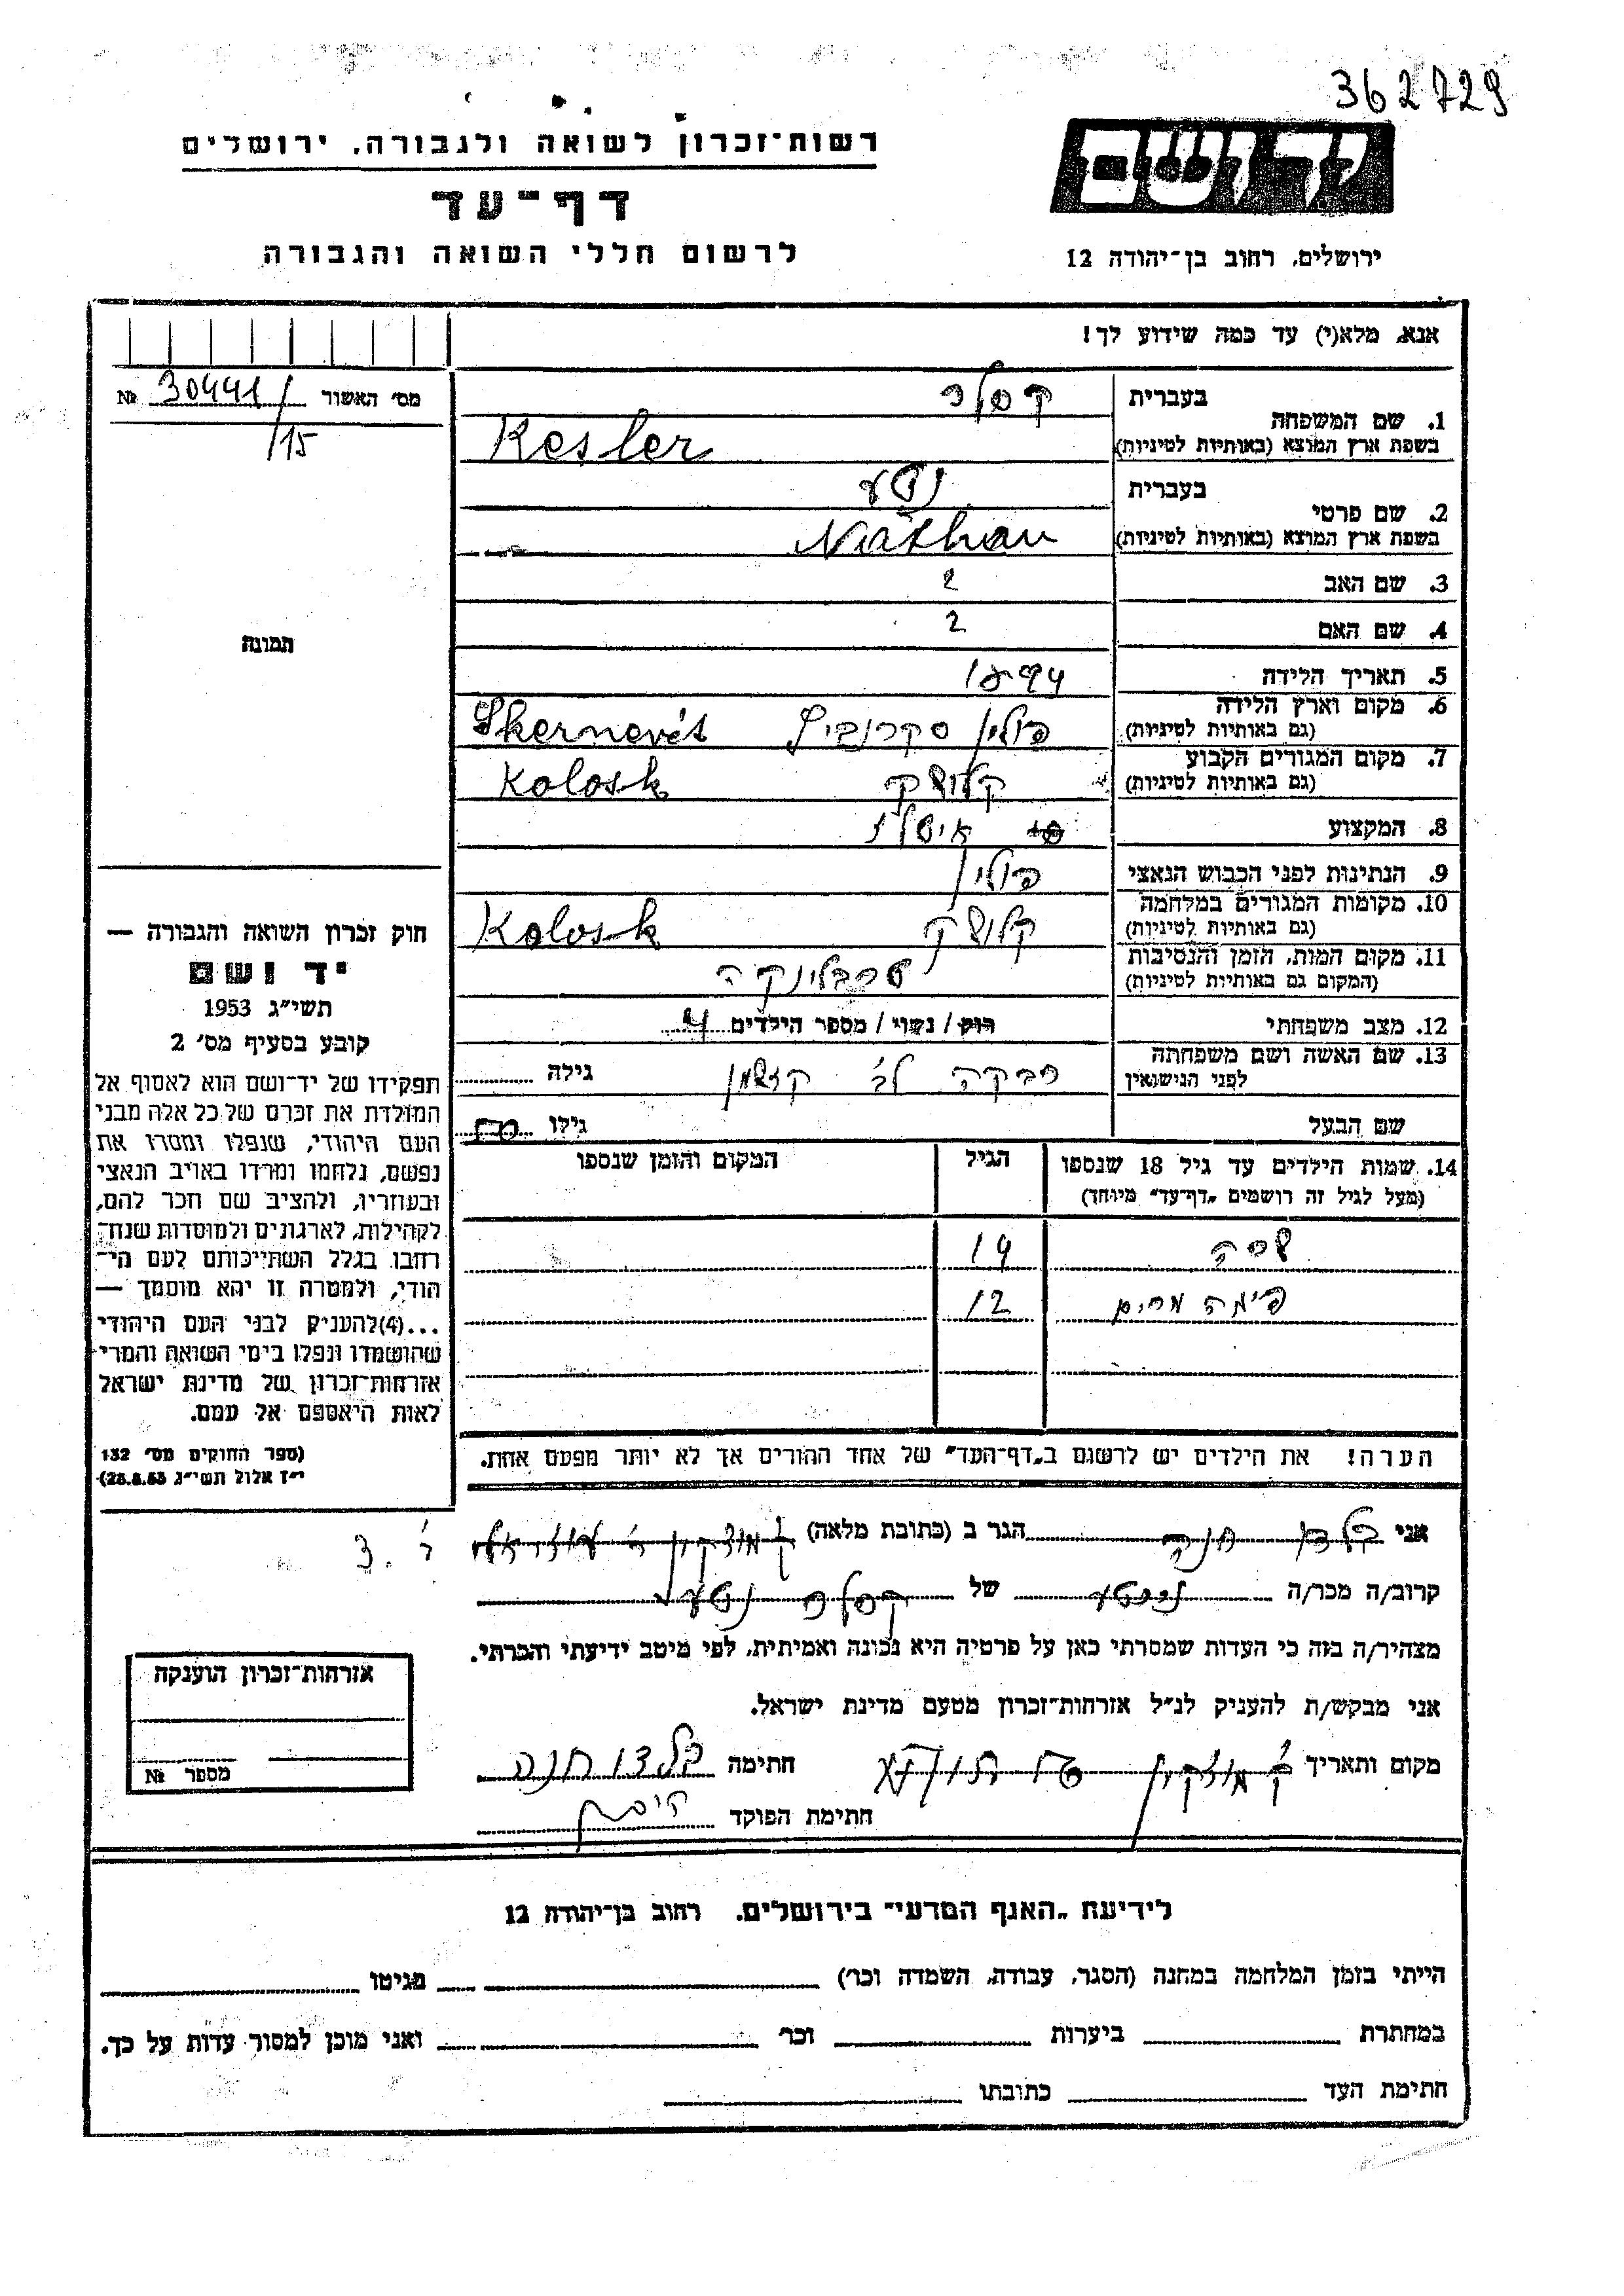 362729
יד ושם
רשות־זכרון לשואה ולגבורה, ירושלים
דף־עד
לרשום חללי השואה והגבורה
ירושלים, רחוב בן־יהודה 12
אנא, מלא(י) עד כמה שידוע לך!
מס׳ האשור 30441/ №
/15
תמונה
1. שם המשפחה
בעברית קסלר
בשפת ארץ המוצא (באותיות לטיניות) Kesler
2. שם פרטי
בעברית נטע
בשפת ארץ המוצא (באותיות לטיניות) Nathan
3. שם האב ?
4. שם האם ?
5. תאריך הלידה 1894
6. מקום וארץ הלידה
(גם באותיות לטיניות) פולין סקרנביץ Skernevès
7. מקום המגורים הקבוע
(גם באותיות לטיניות) קלושק Kolosk
8. המקצוע
9. הנתינות לפני הכבוש הנאצי פולין
10. מקומות המגורים במלחמה
(גם באותיות לטיניות) קלושק Kolosk
11. מקום המות, הזמן והנסיבות
(המקום גם באותיות לטיניות) טרבלינקה
12. מצב משפחתי רוק / נשוי / מספר הילדים 4
13. שם האשה ושם משפחתה
לפני הנישואין רבקה לב׳ גילה
שם הבעל גילו
14. שמות הילדים עד גיל 18 שנספו הגיל המקום והזמן שנספו
(מעל לגיל זה רושמים „דף־עד״ מיוחד)
שרה 14
פימה מרים 12
הערה! את הילדים יש לרשום ב„דף־העד״ של אחד ההורים אך לא יותר מפעם אחת.
חוק זכרון השואה והגבורה —
יד ושם
תשי״ג 1953
קובע בסעיף מס׳ 2
תפקידו של יד־ושם הוא לאסוף אל
המולדת את זכרם של כל אלה מבני
העם היהודי, שנפלו ומסרו את
נפשם, נלחמו ומרדו באויב הנאצי
ובעוזריו, ולהציב שם וזכר להם,
לקהילות, לארגונים ולמוסדות שנח־
רבו בגלל השתייכותם לעם הי־
הודי, ולמטרה זו יהא מוסמך —
...(4) להעניק לבני העם היהודי
שהושמדו ונפלו בימי השואה והמרי
אזרחות־זכרון של מדינת ישראל
לאות היאספם אל עמם.
(ספר החוקים מס׳ 132
י״ז אלול תשי״ג 28.8.53)
אני חנה הגר ב (כתובת מלאה) ק מוצקין
קרוב/ה מכר/ה של קסלר נטע
מצהיר/ה בזה כי העדות שמסרתי כאן על פרטיה היא נכונה ואמיתית, לפי מיטב ידיעתי והכרתי.
אני מבקש/ת להעניק לנ״ל אזרחות־זכרון מטעם מדינת ישראל.
מקום ותאריך ק׳ מוצקין חתימה חנה
חתימת הפוקד
אזרחות־זכרון הוענקה
מספר №
לידיעת „האגף המדעי״ בירושלים, רחוב בן־יהודה 12
הייתי בזמן המלחמה במחנה (הסגר, עבודה, השמדה וכו׳) בגיטו
במחתרת ביערות וכו׳ ואני מוכן למסור עדות על כך.
חתימת העד כתובתו